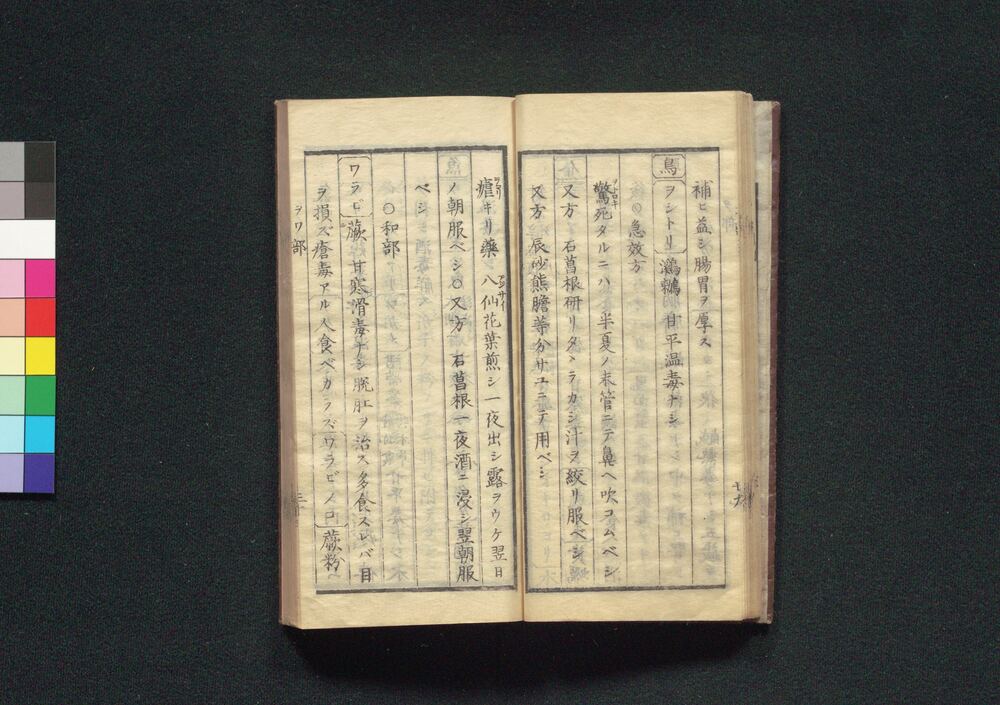 補ヒ益シ腸胃ヲ厚ス
鳥 ヲシトリ 鸂鶒 甘平温毒ナシ
後の急效方
驚死タルニハ 半夏ノ末管ニテ鼻ヘ吹コムベシ
又方 石菖根研リタヽラカシ汁ヲ絞リ服ベシ
又方 辰砂熊膽等分サユニテ用ベシ
瘧キリ藥 八仙花葉煎シ一夜出シ露ヲウケ翌日
ノ朝服ベシ○又方 石菖根一夜酒ニ浸シ翌朝服
ベシ
○和部
ワラビ 蕨 甘寒滑毒ナシ脱肛ヲ治ス多食スレバ目
ヲ損ズ瘡毒アル人食ベカラズ ワラビノコ 蕨粉
ヲワ部